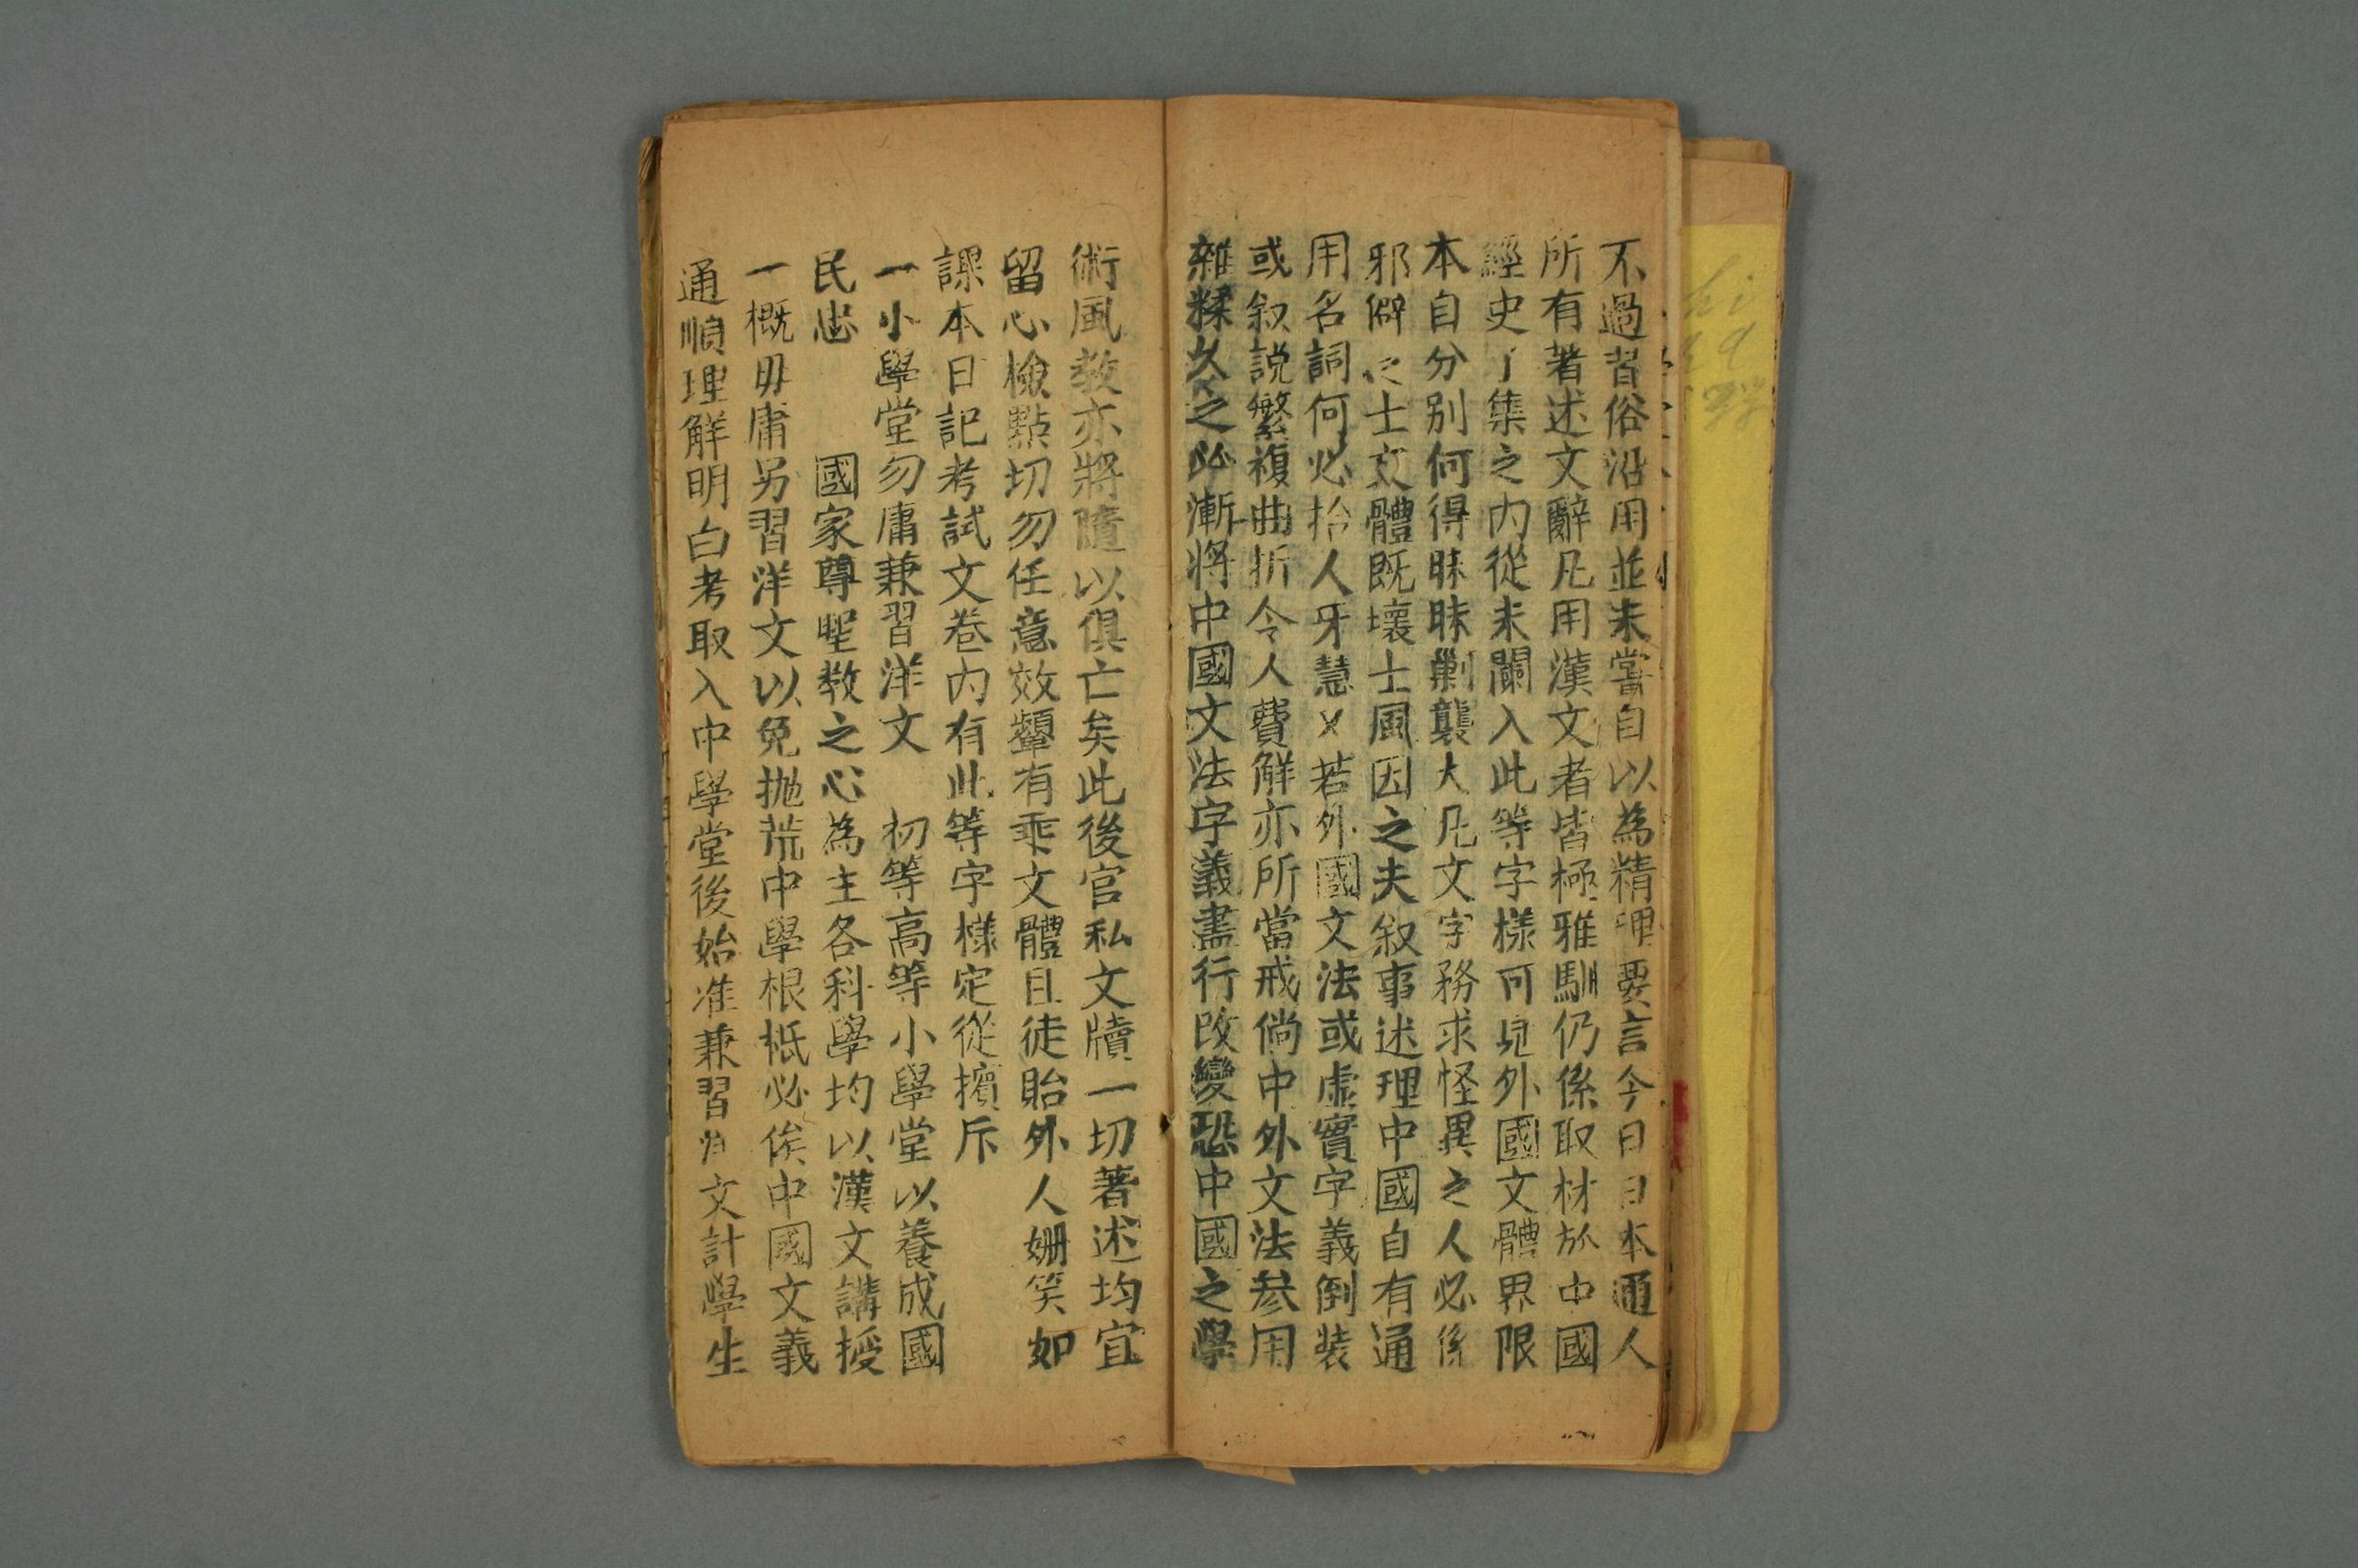 不過習俗沿用並未嘗自以為精理要言今日日本通人
所有著述文辭凡用漢文者皆極雅馴仍係取材於中國
經史子集之內從未闌入此等字樣可見外國文體界限
本自分別何得昧昧剿襲大凡文字務求怪異之人必係
邪僻之士文體既壞士風因之夫叙事述理中國自有通
用名詞何必拾人牙慧又若外國文法或虛實字義倒裝
或叙說繁複曲折令人費解亦所當戒倘中外文法參用
雜糅久久之必漸將中國文法字義盡行改變恐中國之學
術風教亦將隨以俱亡矣此後官私文牘一切著述均宜
留心檢點切勿任意效顰有乖文體且徒貽外人姍笑如
課本日記考試文卷內有此等字樣定從擯斥
一小學堂勿庸兼習洋文 初等高等小學堂以養成國
民忠 國家尊聖教之心為主各科學均以漢文講授
一概毋庸另習洋文以免拋荒中學根柢必俟中國文義
通順理解明白考取入中學堂後始准兼習 文計學生